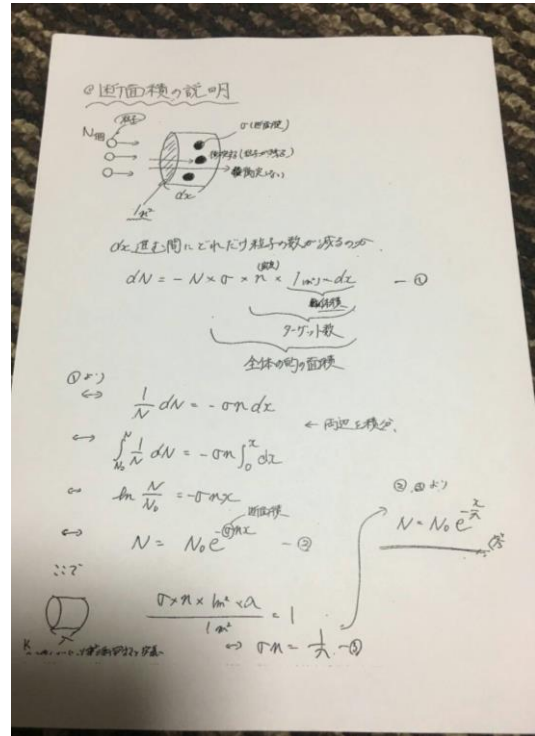 断面積の説明
粒子
N個
σ(断面積)
衝突する(粒子が減る)
衝突しない
dx
1m²
dx 進む間にどれだけ粒子の数が減るのか.
(密度)
dN = - N × σ × n × 1m² × dx — ①
体積
ターゲット数
全体の的の面積
①より
⇔ 1/N dN = - σ n dx
← 両辺を積分.
⇔ ∫_{N₀}^{N} 1/N dN = - σ n ∫_0^x dx
⇔ ln N/N₀ = - σ n x
断面積
⇔ N = N₀ e^{-σnx} — ②
ここで
(σ × n × 1m² × λ) / 1m² = 1
⇔ σn = 1/λ — ③
②,③より
N = N₀ e^{-x/λ}